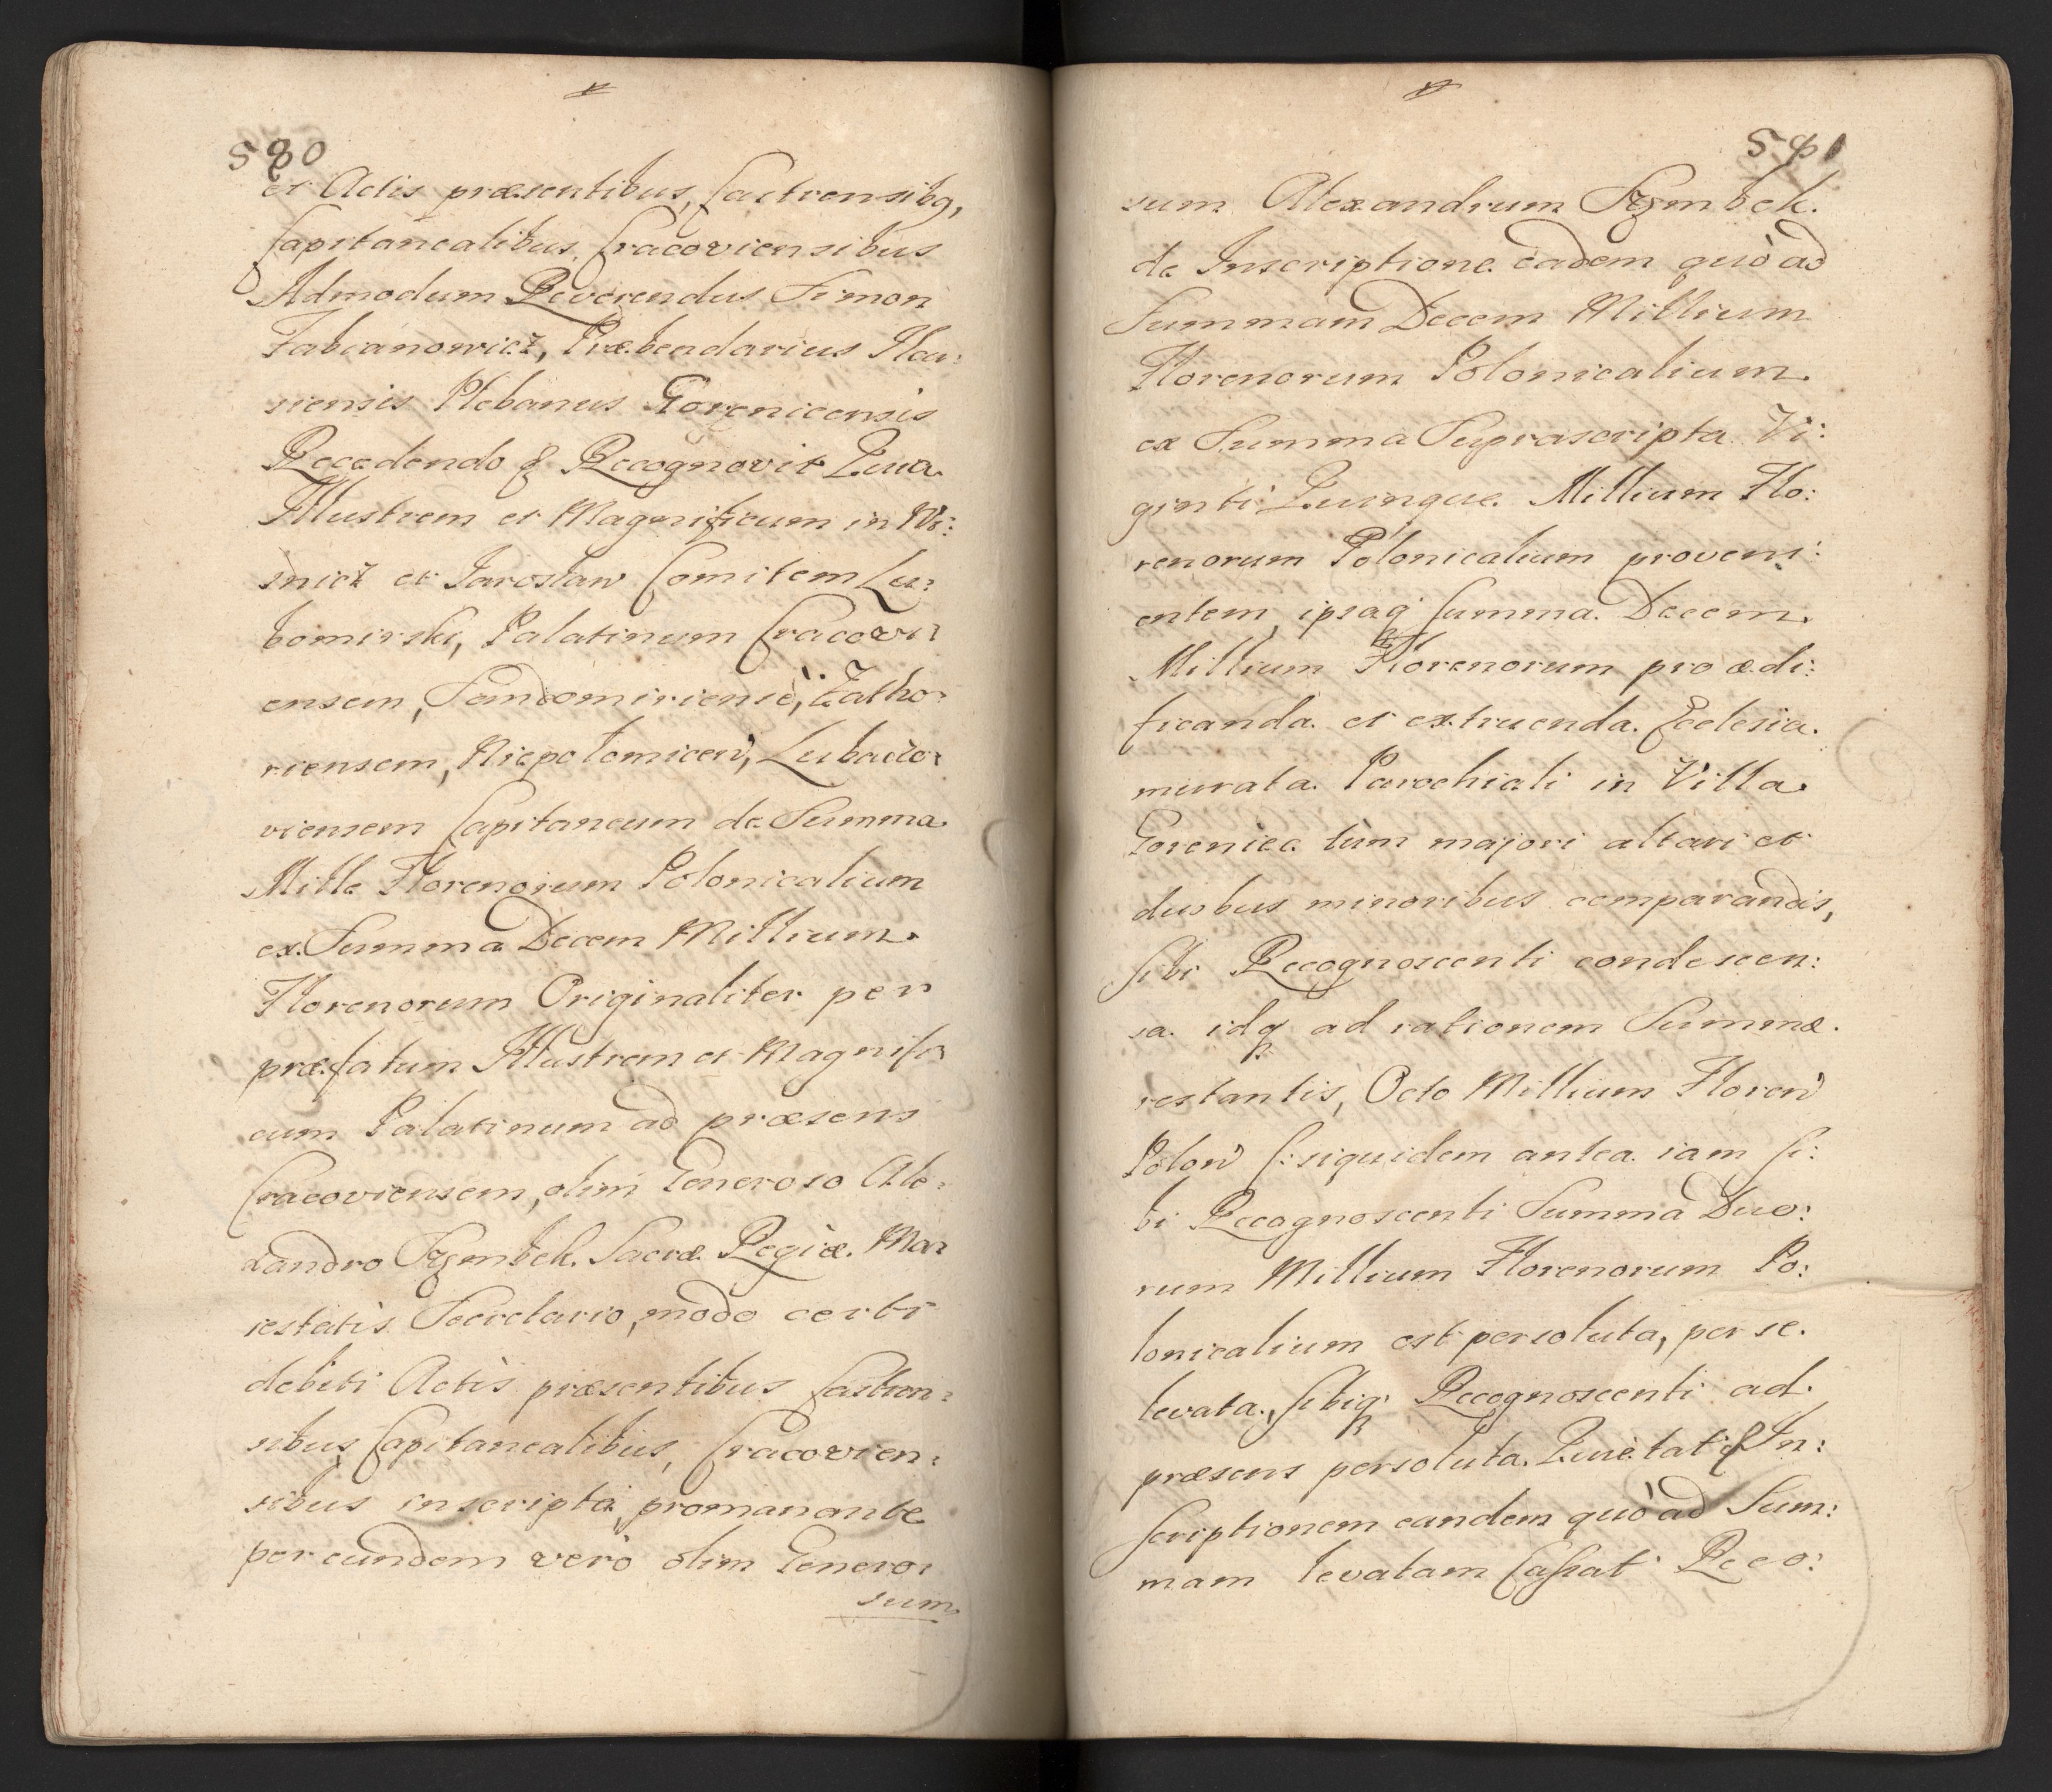 580
et Actis præsentibus, Castrensibq,
Capitanealibus, Cracoviensibus
Admodum Reverendus Simon
Fabianowicz, Præbendarius Ilcu:
siensis Plebanus Gorenicensis
Recedendo & Recognovit Quia
Illustrem et Magnificum in Wi:
snicz et Jaroslaw Comitem Lu:
bomirski, Palatinum Cracovi:
ensem, Sandomiriensē, Zatho:
riensem, Niepolomicen, Lubaczo:
viensem Capitaneum de Summa
Mille Florenorum Polonicalium
ex Summa Decem Millium
Florenorum Originaliter per
præfatum Illustrem et Magnifi:
cum Palatinum ad præsens
Cracoviensem, olim Generoso Ale:
xandro Szembek Sacræ Regiæ Ma:
iestatis Secretario, modo certi
debiti Actis præsentibus Castren:
sibus, Capitanealibus, Cracovien:
sibus inscripta, promanante
per eundem verò olim Genero:
sum
581
sum Alexandrum Szembek
de Inscriptione eadem quò ad
Summam Decem Millium
Florenorum Polonicalium
ex Summa Suprascripta Vi:
ginti Quinque Millium Flo:
renorum Polonicalium proveni:
entem, ipsaq summa Decem
Millium Florenorum pro ædi:
ficanda et extruenda Ecclesia
murata Parochiali in Villa
Gorenice tùm majori altari et
duobus minoribus comparandis,
sibi Recognoscenti condescen:
sa idq ad rationem Summæ
restantis, Octo Millium Floren
Polon /: siquidem antea iam si:
bi Recognoscenti Summa Duo:
rum Millium Florenorum Po:
lonicalium est persoluta, per se
levata, sibiq Recognoscenti ad
præsens persoluta Quietat & In:
scriptionem eandem quò ad Sum:
mam levatam Cassat Reco: